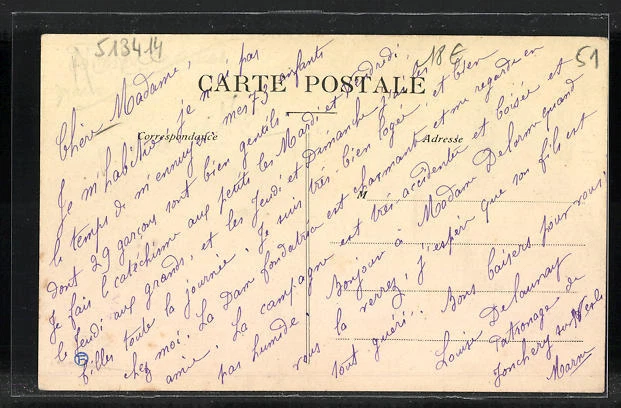 513414
18 E
51
CARTE POSTALE
Correspondance
Adresse
M
Chère Madame,
Je m'habitue, je n'ai pas
le temps de m'ennuyer. mes 73 enfants
dont 29 garçons sont bien gentils
Je fais le catéchisme aux petits les Mardi et Vendredi,
le Jeudi aux grands, et les Jeudi et Dimanche j'ai les
filles toute la journée. Je suis très-bien logée, et bien
chez moi. La Dam fondatrice est charmante et me regarde en
amie. La campagne est très-accidentée et boisée est
pas humide. Bonjour à Madam Delorm quand
vous la verrez, j'espère que son fils est
tout guéri. Bons baisers pour vous.
Louise Delaunay
Patronage de
Jonchery sur Vesle
Marne